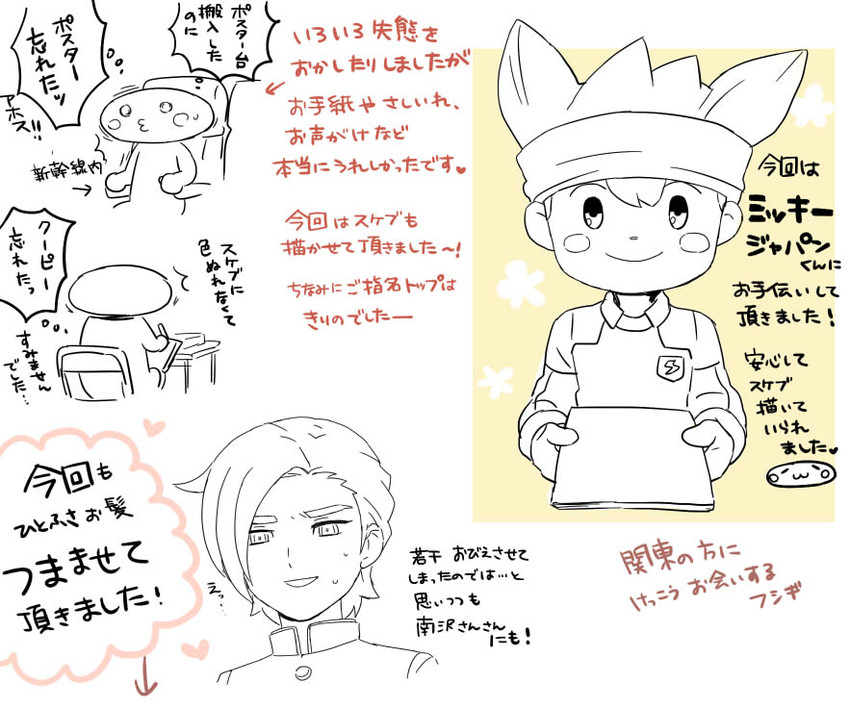 ポスター台
搬入した
のに
ポスター
忘れたッ
アホス!!
新幹線内
→
いろいろ失態を
おかしたりしましたが
お手紙やさしいれ、
お声がけなど
本当にうれしかったです♥
今回はスケブも
描かせて頂きました〜!
ちなみにご指名トップは
きりのでしたー
クーピー
忘れたっ
スケブに
色ぬれなくて
すみません
でした…
今回は
ミッキー
ジャパン
くんに
お手伝いして
頂きました!
安心して
スケブ
描いて
いられ
ました♥
今回も
ひとふさお髪
つまませて
頂きました!
え…
若干 おびえさせて
しまったのでは…と
思いつつも
南沢さんさん
にも!
関東の方に
けっこうお会いする
フシギ